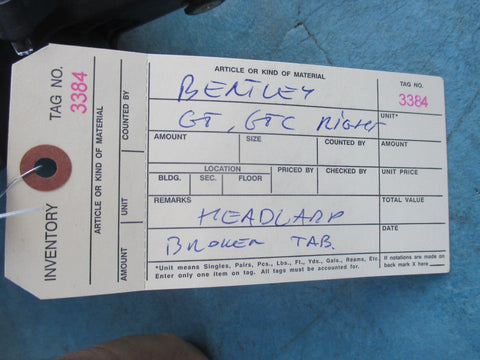 INVENTORY TAG NO. 3384
ARTICLE OR KIND OF MATERIAL
AMOUNT UNIT COUNTED BY
ARTICLE OR KIND OF MATERIAL
BENTLEY
TAG NO.
3384
GT, GTC RIGHT
UNIT*
AMOUNT SIZE COUNTED BY
LOCATION PRICED BY CHECKED BY UNIT PRICE
BLDG. SEC. FLOOR
REMARKS TOTAL VALUE
HEADLAMP
BROKEN TAB.
DATE
*Unit means Singles, Pairs, Pcs., Lbs., Ft., Yds., Gals., Reams, Etc.
Enter only one item on tag. All tags must be accounted for.
If notations are made on
back mark X here